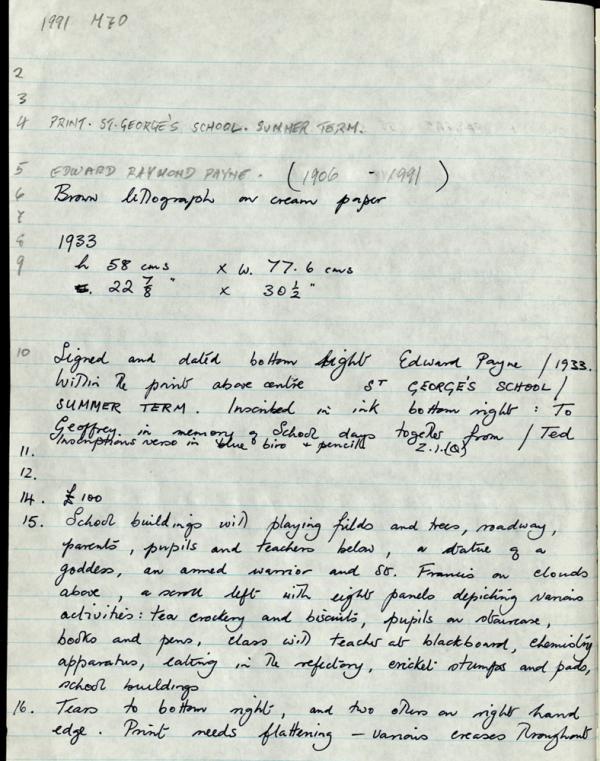 1991 M70
2
3
4 PRINT. ST. GEORGE'S SCHOOL. SUMMER TERM.
5 EDWARD RAYMOND PAYNE. (1906 - 1991)
6 Brown lithograph on cream paper
7
8 1933
9 h 58 cms x w. 77.6 cms
22 7/8 " x 30 1/2 "
10 Signed and dated bottom right Edward Payne / 1933.
Within the print above centre ST GEORGE'S SCHOOL /
SUMMER TERM. Inscribed in ink bottom right: To
Geoffrey in memory of School days together from / Ted
11. Inscriptions verso in blue biro + pencil
12.
14. £100
15. School buildings with playing fields and trees, roadway,
parents, pupils and teachers below, a statue of a
goddess, an armed warrior and St. Francis on clouds
above, a scroll left with eight panels depicting various
activities: tea crockery and biscuits, pupils on staircase,
books and pens, class with teacher at blackboard, chemistry
apparatus, eating in the refectory, cricket stumps and pads,
school buildings
16. Tears to bottom right, and two others on right hand
edge. Print needs flattening - various creases throughout